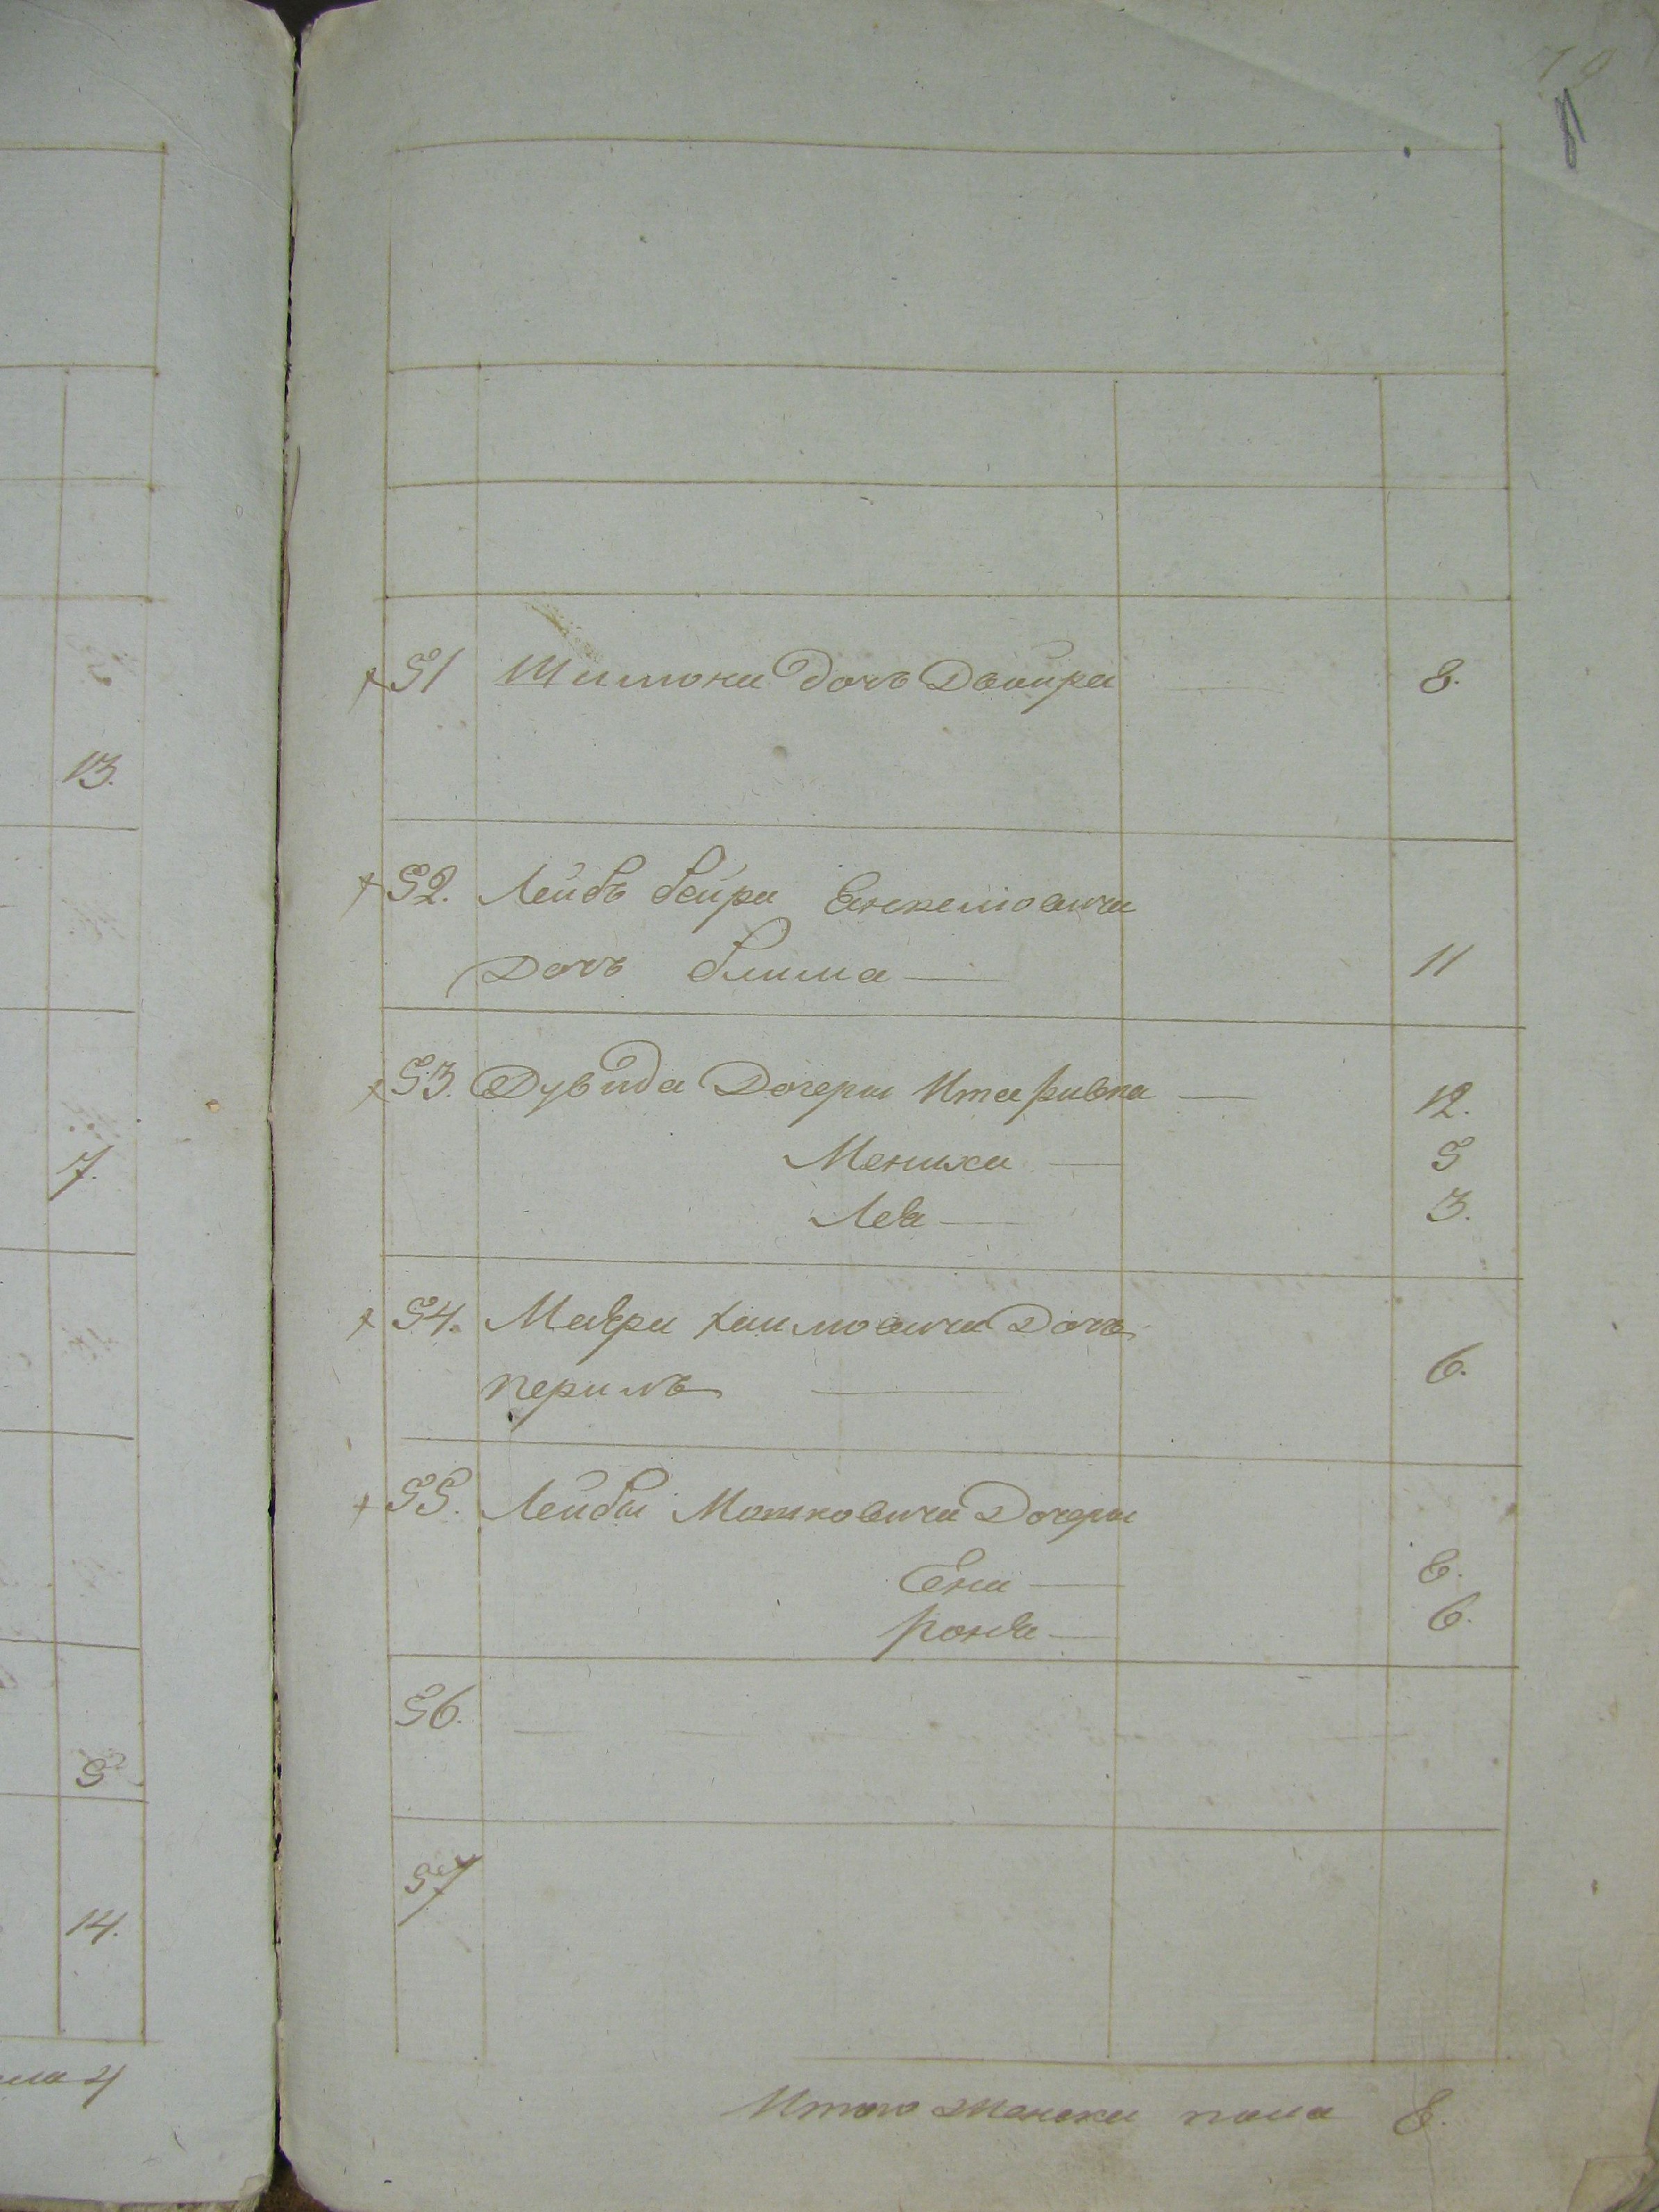 13.
7.
5
14.
ла 4
51 Шимона дочь Двойра — 8.
52. Лейбъ бейра Енкелювича
Дочь блима — 11
53. Дувида Дочери Ита ривка — 12.
Мениха — 5
Леа — 3.
54. Меера хаимовича Дочь
перилъ — 6.
55. Лейбы Мошковича Дочери
Ена — 8.
ронза — 6.
56.
57
Итого женска пола 8.